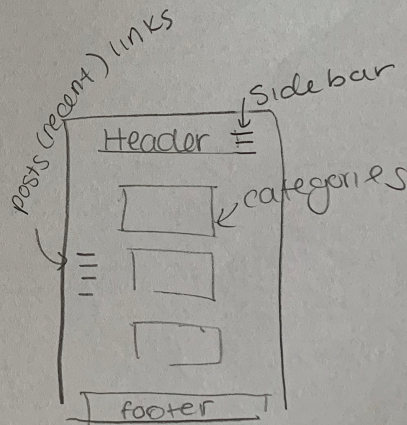 posts (recent) links
Sidebar
Header
categories
footer